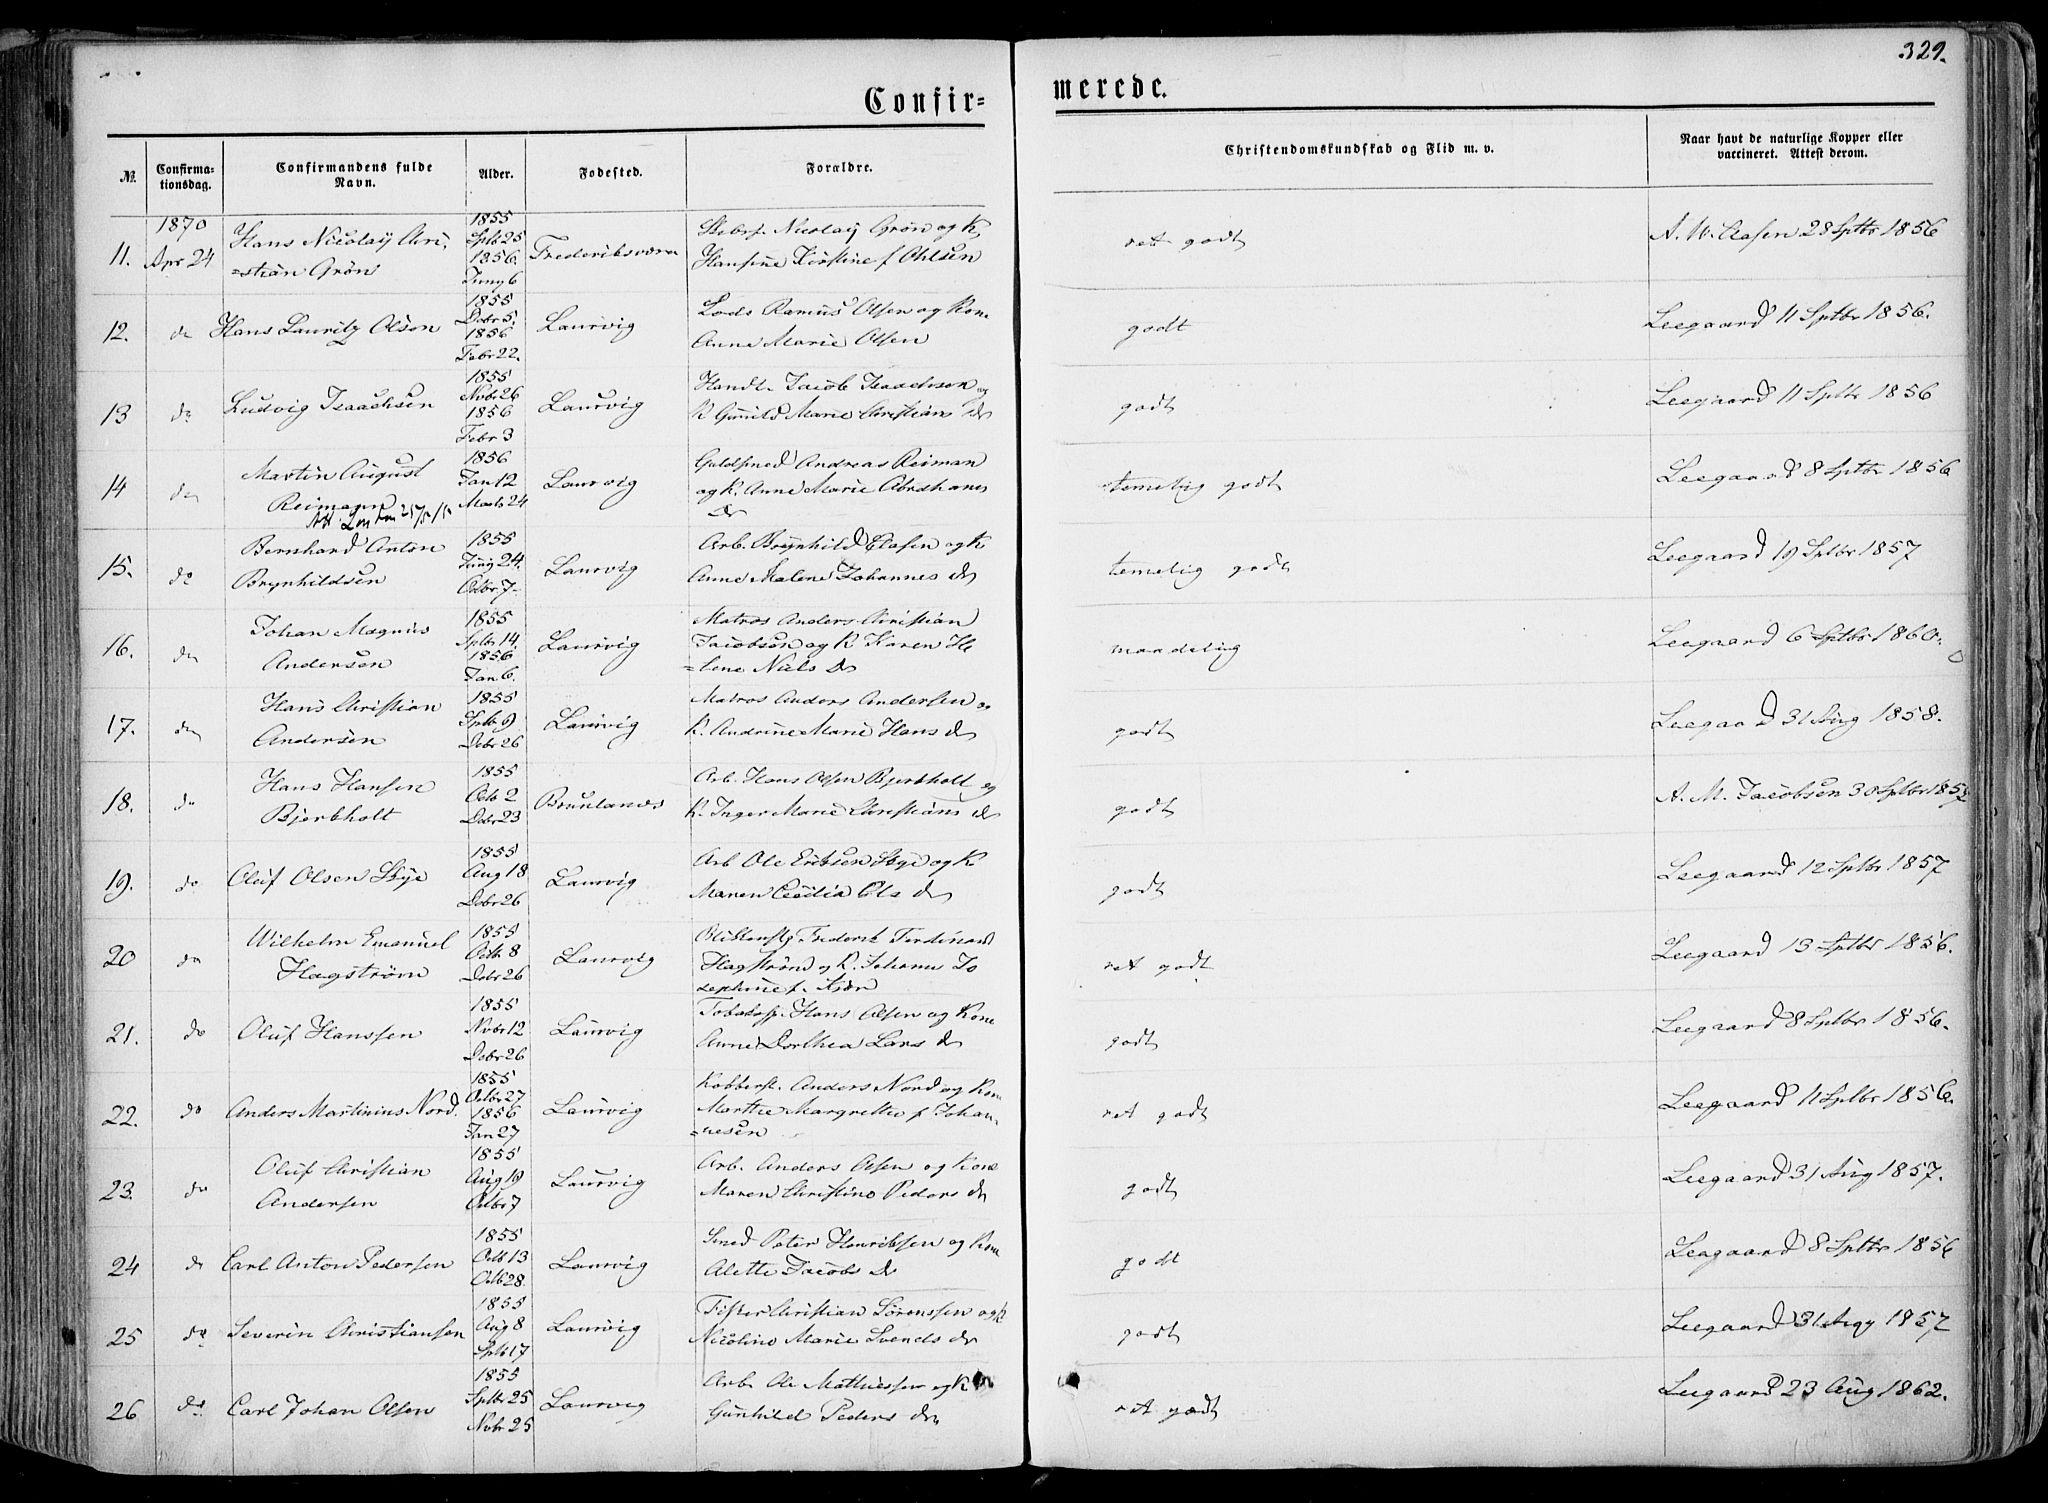 329.
Confir=
merede.
№.
Confirma-
tionsdag.
Confirmandens fulde
Navn.
Alder.
Fødested.
Forældre.
Christendomskundskab og Flid m. v.
Naar havt de naturlige Kopper eller
vaccineret. Attest derom.
11.
1870
Apr 24
Hans Nicolaij Chri,
=stian Grön
1855
Sptb 25
1856.
Juny 6
Frederiksværn
Nicolaij Grön og K
Hansine Kirstine f Ohlsen
ret godt
28 Sptbr 1856
12.
do
Hans Lauritz Olson
1855
Dcbr 5.
1856
Febr 22.
Laurvig
Lods Ramus Olsen og Kone
Anne Marie Olsen
godt
Leegaard 11 Sptbr 1856.
13
do
Ludvig Isaachsen
1855
Nvbr 26
1856
Febr 3
Laurvig
Handl. Jacob Isaachsen og
K Gunild Marie Christians d
godt
Leegaard 11 Sptbr 1856
14
do
Martin August
Reimann
1856
Jan 12
Marts 24
Laurvig
Guldsmed Andreas Reiman
og K. Anne Marie Abrahams
dr
temelig godt
Leegaard 8 Sptbr 1856
15.
do
Bernhard Anton
Brynhildsen
1855
Juny 24.
Octbr 7
Laurvig
Arb. Brynhild Olasen og K
Anne Malene Johannes dr
temelig godt
Leegaard 19 Sptbr 1857
16.
do
Johan Magnus
Andersen
1855
Sptbr 14.
1856
Jan 6.
Laurvig
Matros Anders Christian
Jacobsen og K Karen He
=lene Niels dr
maadelig
Leegaard 6 Sptbr 1860.
17.
do
Hans Christian
Andersen
1855
Sptb 9
Dcbr 26
Laurvig
Matros Anders Andersen og
K. Andrine Marie Hans dr
godt
Leegaard 31 Aug 1858.
18.
do
Hans Hansen
Bjerkholt
1855
Octb 2
Dcbr 23
Brunlanæs
Arb. Hans Olsen Bjerkholt og
K. Inger Marie Christians dr
godt
A. M. Jacobsen 30 Sptbr 1857
19.
do
Oluf Olsen Skye
1855
Aug 18
Dcbr 26
Laurvig
Arb Ole Eriksen Skye og K
Maren Cecilia Ols dr
godt
Leegaard 12 Sptbr 1857
20
do
Wilhelm Emanuel
Hagström
1855
Octb 8
Dcbr 26
Laurvig
Frederik Ferdinand
Hagström og K. Johanne Jo
sephine f. Kjær
ret godt
Leegaard 13 Sptbr 1856.
21.
do
Oluf Hanssen
1855
Nvbr 12
Dcbr 26
Laurvig
Hans Olsen og Kone
Anne Dorthea Lars dr
godt
Leegaard 8 Sptbr 1856.
22.
do
Anders Martinius Nord.
1855
Octbr 27
1856
Jan 27
Laurvig
Kobberst. Anders Nord og Kone
Marthe Margrethe f Johan=
=nesen
ret godt
Leegaard 11 Sptbr 1856.
23.
do
Oluf Christian
Andersen
1855
Aug 19
Octbr 7
Laurvig
Arb. Anders Olsen og Kone
Maren Christine Peders dr
godt
Leegaard 31 Aug 1857.
24
do
Carl Anton Pedersen
1855
Octb 13
Octb 28.
Laurvig
Smed Peter Henriksen og Kone
Alette Jacobs dr
godt
Leegaard 8 Sptbr 1856
25
do
Severin Christiansen
1855
Aug 8
Sptb 17
Laurvig
Fisker Christian Sörenssen og K
Nicoline Marie Svends dr
godt
Leegaard 31 Aug 1857
26
do
Carl Johan Olsen
1855
Sptbr 25
Nvbr 25
Laurvig
Arb. Ole Mathiessen og K
Gunhild Peders dr
ret godt
Leegaard 23 Aug 1862.